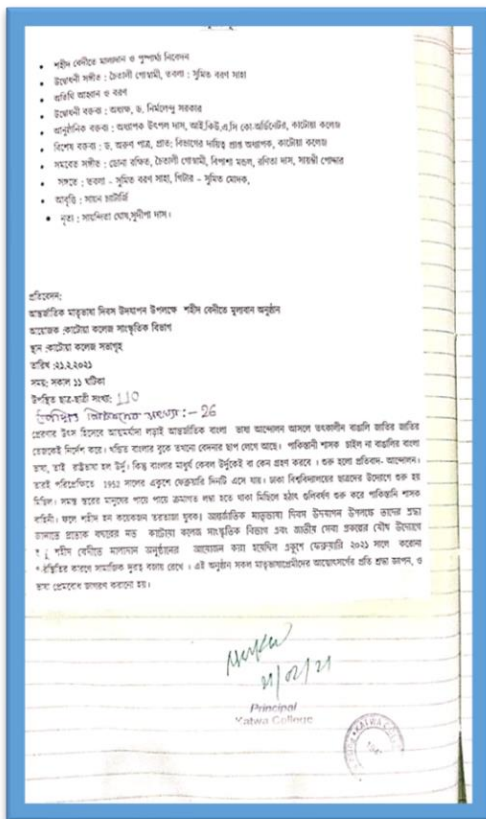 • শহীদ বেদীতে মাল্যদান ও পুষ্পার্ঘ্য নিবেদন
• উদ্বোধনী সঙ্গীত : চৈতালী গোস্বামী, তবলা : সুমিত বরণ সাহা
• অতিথি আহবান ও বরণ
• উদ্বোধনী বক্তব্য : অধ্যক্ষ, ড. নির্মলেন্দু সরকার
• আনুষ্ঠানিক বক্তব্য : অধ্যাপক উৎপল দাস, আই.কিউ.এ.সি কো-অর্ডিনেটর, কাটোয়া কলেজ
• বিশেষ বক্তব্য : ড. অরুণ পাত্র, প্রাত: বিভাগের দায়িত্ব প্রাপ্ত অধ্যাপক, কাটোয়া কলেজ
• সমবেত সঙ্গীত : ডোনা রক্ষিত, চৈতালী গোস্বামী, বিপাশা মন্ডল, রণিতা দাস, সায়ন্তী পোদ্দার
• সঙ্গতে : তবলা - সুমিত বরণ সাহা, গিটার - সুমিত মোদক,
• আবৃত্তি : সায়ন চ্যাটার্জি
• নৃত্য : সায়ন্দিতা ঘোষ,সুদীপা দাস।
প্রতিবেদন:
আন্তর্জাতিক মাতৃভাষা দিবস উদযাপন উপলক্ষে শহীদ বেদীতে মূল্যবান অনুষ্ঠান
আয়োজক :কাটোয়া কলেজ সাংস্কৃতিক বিভাগ
স্থান :কাটোয়া কলেজ সভাগৃহ
তারিখ :২১.২.২০২১
সময়: সকাল ১১ ঘটিকা
উপস্থিত ছাত্র-ছাত্রী সংখ্যা: 110
সংখ্যা :- 26
প্রেরণার উৎস হিসেবে আত্মমর্যাদা লড়াই আন্তর্জাতিক বাংলা ভাষা আন্দোলন আসলে তৎকালীন বাঙালি জাতির জাতির
তেজকেই নির্দেশ করে। খন্ডিত বাংলার বুকে তখনো বেদনার ছাপ লেগে আছে। পাকিস্তানী শাসক চাইল না বাঙালির বাংলা
ভাষা, তাই রাষ্ট্রভাষা হল উর্দু। কিন্তু বাংলার মাধুর্য কেবল উর্দুকেই বা কেন গ্রহণ করবে । শুরু হলো প্রতিবাদ- আন্দোলন।
তারই পরিপ্রেক্ষিতে 1952 সালের একুশে ফেব্রুয়ারি দিনটি এসে যায়। ঢাকা বিশ্ববিদ্যালয়ের ছাত্রদের উদ্যোগে শুরু হয়
মিছিল। সমস্ত স্তরের মানুষের পায়ে পায়ে ক্রমাগত লম্বা হতে থাকা মিছিলে হঠাৎ গুলিবর্ষণ শুরু করে পাকিস্তানি শাসক
বাহিনী। ফলে শহীদ হন কয়েকজন তরতাজা যুবক। আন্তর্জাতিক মাতৃভাষা দিবস উদযাপন উপলক্ষে তাদের শ্রদ্ধা
জানাতে প্রত্যেক বছরের মত কাটোয়া কলেজ সাংস্কৃতিক বিভাগ এবং জাতীয় সেবা প্রকল্পের যৌথ উদ্যোগে
শহীদ বেদীতে মাল্যদান অনুষ্ঠানের আয়োজন করা হয়েছিল একুশে ফেব্রুয়ারি ২০২১ সালে করোনা
কারণে সামাজিক দূরত্ব বজায় রেখে । এই অনুষ্ঠান সকল মাতৃভাষাপ্রেমীদের আত্মোৎসর্গের প্রতি শ্রদ্ধা জ্ঞাপন, ও
ভাষা প্রেমবোধ জাগরণ করানো হয়।
21/02/21
Principal
Katwa College
KATWA